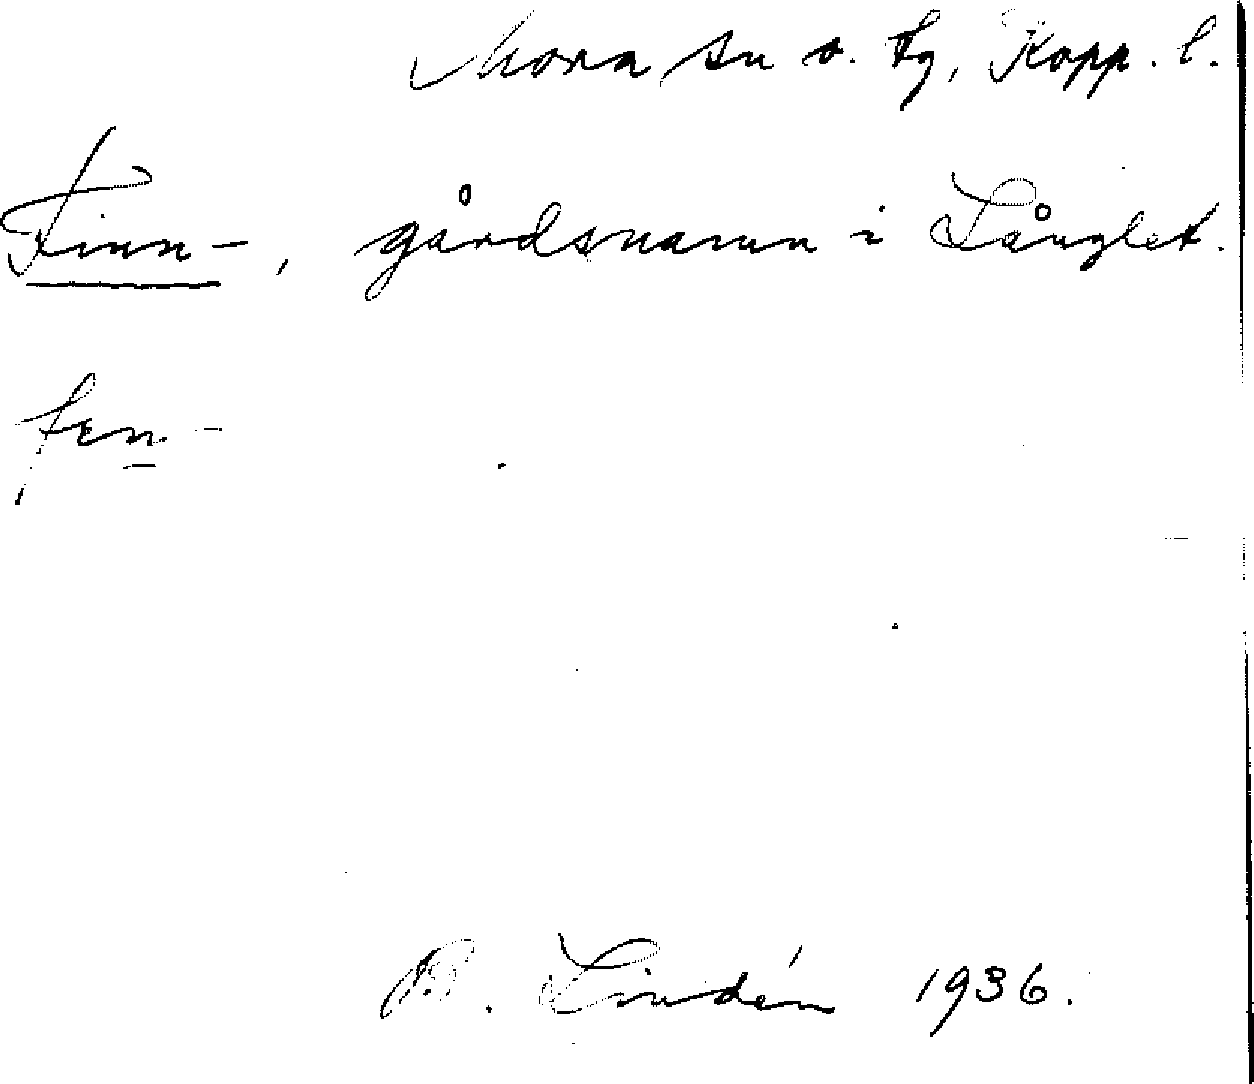 Mora sn o. tg, Kopp. l.
Finn-, gårdsnamn i Långlet.
fɪn-
B. Lindén 1936.